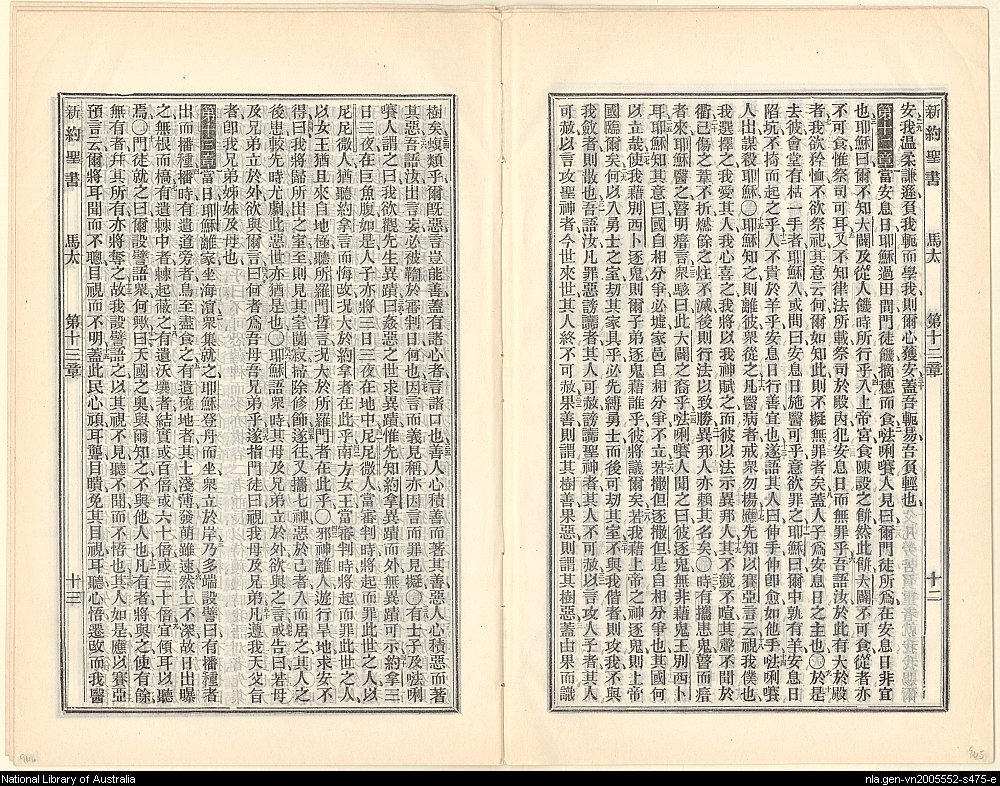 新約聖書 馬太 第十二章 十二
安我温柔謙遜負我軛而學我則爾心獲安蓋吾軛易吾負輕也
第十二章當安息日耶穌過田間門徒饑摘穗而食𠵽唎㘔人見曰爾門徒所為在安息日非宜
也耶穌曰爾不知大闢及從人饑時所行乎入上帝宮食陳設之餅然此餅大闢不可食從者亦
不可食惟祭司可耳又不知律法所載祭司於殿內犯安息日而無罪乎吾語汝於此有大於殿
者我欲矜恤不欲祭祀其意云何爾如知此則不擬無罪者矣蓋人子為安息日之主也〇於是
去彼會堂有枯一手者耶穌入或問曰安息日施醫可乎意欲罪之耶穌曰爾中孰有羊安息日
陷坑不掎而起之乎人不貴於羊乎安息日行善宜也遂語其人曰伸手伸即愈如他手𠵽唎㘔
人出謀殺耶穌〇耶穌知之則離彼衆從之凡醫病者戒衆勿揚應先知以賽亞言云視我僕也
我選擇之我愛其人我心喜之我將以我神賦之而彼以法示異邦人其不競不喧其聲不聞於
衢已傷之葦不折燃餘之炷不滅後則行法以致勝異邦人亦賴其名矣〇時有攜患鬼瞽而瘖
者來耶穌醫之瞽明瘖言衆駭曰此大闢之裔乎𠵽唎㘔人聞之曰彼逐鬼無非藉鬼王別西卜
耳耶穌知其意曰國自相分爭必墟家邑自相分爭不立若撒但逐撒但是自相分爭也其國何
以立哉使我藉別西卜逐鬼則爾子弟逐鬼藉誰乎彼將議爾矣若我藉上帝之神逐鬼則上帝
國臨爾矣何以入勇士之室刼其家具乎必先縛勇士而後可刼其室不與我偕者則攻我不與
我斂者則散也吾語汝凡罪惡謗讟者其人可赦謗讟聖神者其人不可赦以言攻人子者其人
可赦以言攻聖神者今世來世其人終不可赦果善則謂其樹善果惡則謂其樹惡蓋由果而識
新約聖書 馬太 第十三章 十三
樹矣蝮類乎爾旣惡言豈能善蓋有諸心者言諸口也善人心積善而著其善惡人心積惡而著
其惡吾語汝出言妄必被鞫於審判日何也因言而義見稱亦因言而罪見擬〇有士子及𠵽唎
㘔人謂之曰我欲觀先生異蹟曰姦惡之世求異蹟惟先知約拿異蹟而外無異蹟可示約拿三
日三夜在巨魚腹如是人子亦將三日三夜在地中尼尼微人當審判時將起而罪此世之人以
尼尼微人猶聽約拿言而悔改况大於約拿者在此乎南方女王當審判時將起而罪此世之人
以女王猶且來自地極聽所羅門哲言况大於所羅門者在此乎〇邪神離人遊行旱地求安不
得曰我將歸所出之室至則見其室閴寂掃除修飾遂往又攜七神惡於己者入而居之其人之
後患較先時尤劇此惡世亦猶是也〇耶穌語衆時其母及兄弟立於外欲與之言或告曰若母
及兄弟立於外欲與爾言曰何者為吾母吾兄弟乎遂指門徒曰視我母及兄弟凡遵我天父旨
者卽我兄弟姊妹及母也
第十三章當日耶穌離家坐海濱衆集就之耶穌登舟而坐衆立於岸乃多端設譬曰有播種者
出而播種播時有遺道旁者鳥至盡食之有遺磽地者其土淺薄發萌雖速然土不深故日出曝
之無根而槁有遺棘中者棘起蔽之有遺沃壤者結實或百倍或六十倍或三十倍宜傾耳以聽
焉〇門徒就之曰爾設譬語衆何歟曰天國之奧與爾知之不與他人也凡有者將與之使有餘
無有者幷其所有亦將奪之故我設譬語之以其視不見聽不聞而不悟也其人如是應以賽亞
預言云爾將耳聞而不聰目視而不明蓋此民心頑耳聾目瞶免其目視耳聽心悟遷改而我醫
946
945
National Library of Australia
nla.gen-vn2005552-s475-e